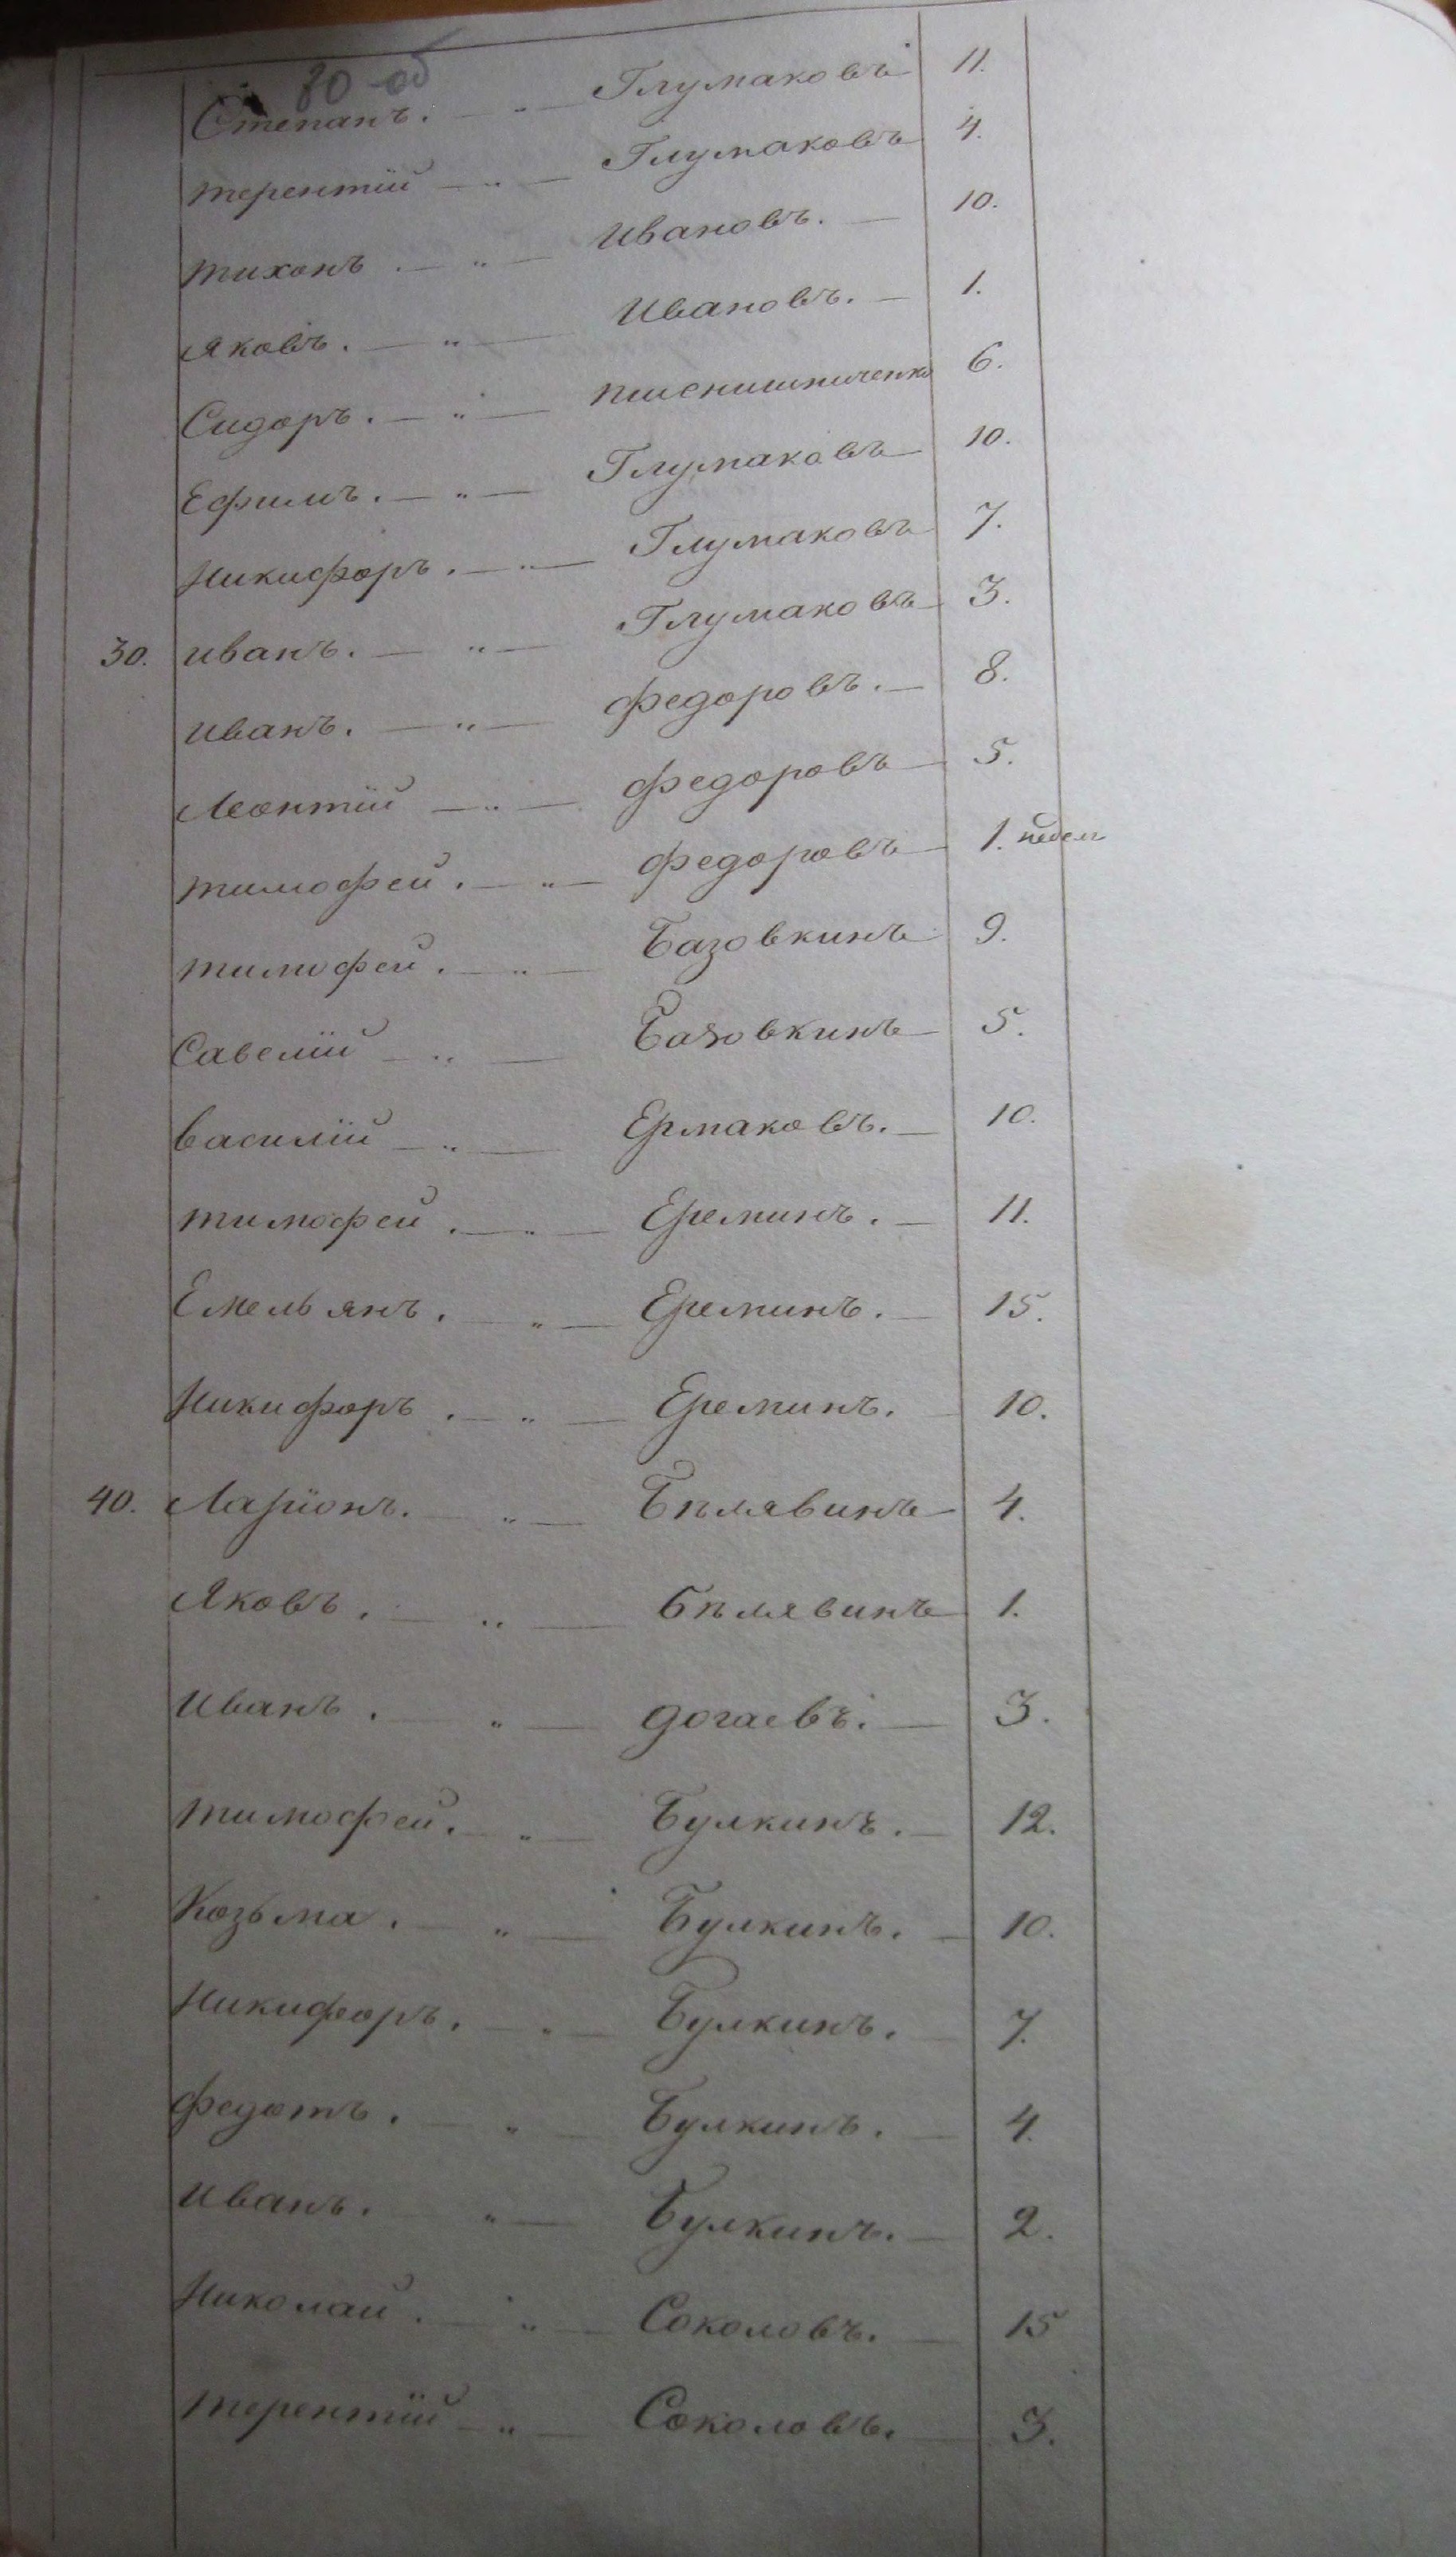 80 об
Степанъ. — „ — Глумаковъ 11.
терентій — „ — Глумаковъ 4.
тихонъ. — „ — Ивановъ. — 10.
Яковъ. — „ — Ивановъ. — 1.
Сидоръ. — „ — 6.
Ефимъ. — „ — Глумаковъ 10.
Никифоръ. — „ — Глумаковъ 7.
30. иванъ. — „ — Глумаковъ 3.
иванъ. — „ — федоровъ. — 8.
Леонтій — „ — федоровъ — 5.
тимофей. — „ — федоровъ — 1. недел
тимофей. — „ — Базовкинъ 9.
Савелій — „ — Базовкинъ — 5.
василій — „ — Ермаковъ. — 10.
тимофей. — „ — Ереминъ. — 11.
Емельянъ. — „ — Ереминъ. — 15.
Никифоръ. — „ — Ереминъ. — 10.
40. Ларіонъ. — „ — Бѣлявинъ — 4.
Яковъ. — „ — Бѣлявинъ 1.
иванъ. — „ — догаевъ. — 3.
тимофей. — „ — Булкинъ. — 12.
Козьма. — „ — Булкинъ. — 10.
Никифоръ. — „ — Булкинъ. — 7.
федотъ. — „ — Булкинъ. — 4.
иванъ. — „ — Булкинъ. — 2.
Николай. — „ — Соколовъ. — 15
терентій — „ — Соколовъ. — 3.